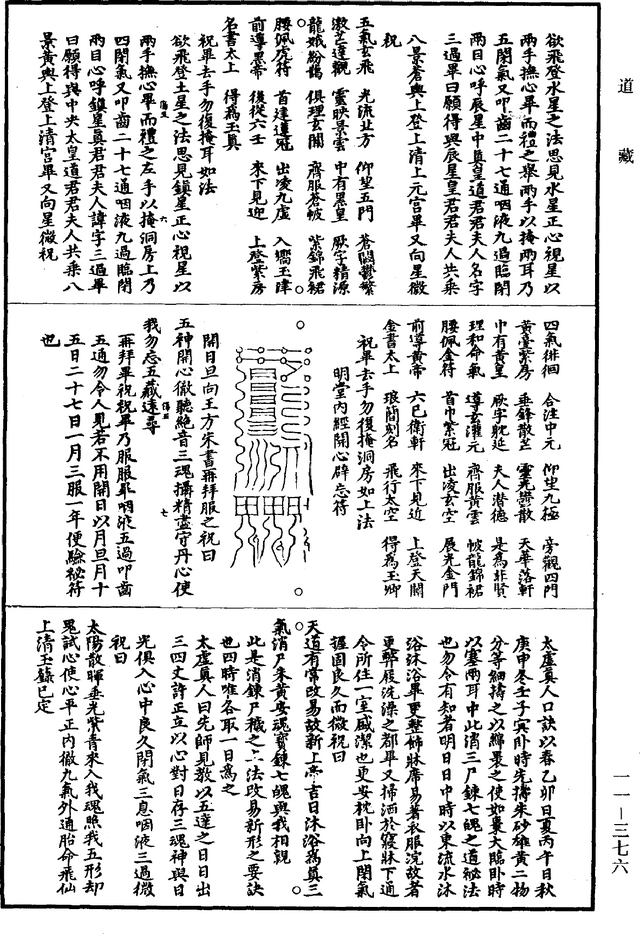 道藏
欲飛登水星之法思見水星正心視星以
兩手撫心畢而禮之舉兩手以掩兩耳乃
五閉氣又叩齒二十七通咽液九過臨閉
兩目心呼辰星中真皇道君君夫人名字
三過畢曰願得與辰星皇君君夫人共乘
八景蒼輿上登上清上元宮畢又向星微
祝
五氣玄飛　光流北方　仰望五門　蒼闕鬱繁
激芝達觀　靈映景雲　中有黑皇　厥字精源
龍娥紛偈　俱理玄關　齊服蒼帔　紫錦飛裙
腰佩虎符　首建蓮冠　出凌九虛　入嚮玉津
前導黑帝　後從六壬　來下見迎　上登紫房
名書太上　得為玉真
祝畢去手勿復掩耳如法
欲飛登土星之法思見鎮星正心視星以
兩手撫心畢而禮之左手以掩洞房上乃
四閉氣又叩齒二十七通咽液九過臨閉
兩目心呼鎮星真君君夫人諱字三過畢
曰願得與中央太皇道君君夫人共乘八
景黃輿上登上清宮畢又向星微祝
四氣徘徊　合注中元　仰望九極　旁觀四門
黃臺紫房　垂鋒散芒　靈光鬱散　天華落軒
中有黃皇　厥字耽延　夫人潛德　是為非賢
理和命氣　導玄灌元　齊服黃雲　帔龍錦裙
腰佩金符　首巾紫冠　出凌玄空　展光金門
前導黃帝　六己衛軒　來下見迎　上登天關
金書太上　琅簡刻名　飛行太空　得為玉卿
祝畢去手勿復掩洞房如上法
明堂內經開心辟忘符
開日旦向王方朱書再拜服之祝曰
五神開心徹聽絕音三魂攝精盡守丹心使
我勿忘五藏遠尋
再拜畢祝祝畢乃服服訖咽液五過叩齒
五通勿令人見若不用開日以月旦月十
五日二十七日一月三服一年便驗祕符
也
太虛真人口訣以春乙卯日夏丙午日秋
庚申冬壬子寅卧時先擣朱砂雄黃二物
分等細擣之以綿裹之使如棗大臨卧時
以塞兩耳中此消三尸鍊七魄之道祕法
也勿令有知者明日日中時以東流水沐
浴沐浴畢更整飾牀席易著衣服浣故者
更弊履洗澡之都畢又掃洒於寢牀下通
令所住一室盛潔也更安枕卧向上閉氣
握固良久而微祝曰
天道有常改易故新上帝吉日沐浴為真三
氣消尸朱黃安魂寶鍊七魄與我相親
此是消鍊尸穢之上法改易新形之要訣
也四時唯各取一日為之
太虛真人曰先師見教以五達之日日出
三四丈許正立以心對日存三魂神與日
光俱入心中良久閉氣三息咽液三過微
祝曰
太陽散暉垂光紫青來入我魂照我五形却
鬼試心使心平正內徹九氣外通胎命飛仙
上清玉籙已定
一一－三七六